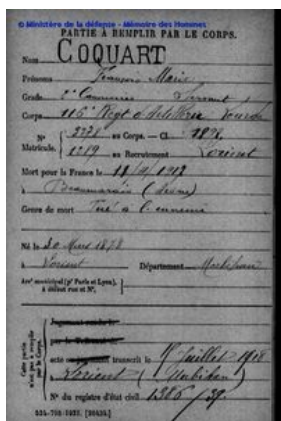 © Ministère de la défense - Mémoire des Hommes
PARTIE À REMPLIR PAR LE CORPS.
Nom COQUART
Prénoms François Marie
Grade 2e Canonnier Servant
Corps 116e Régt d'Artillerie Lourde
N° 3271 au Corps. — Cl. 1898
Matricule. 1219 au Recrutement Lorient
Mort pour la France le
à Beaumarais (Aisne)
Genre de mort Tué à l'ennemi
Né le 30 Mars 1878
à Lorient Département Morbihan
Arrt municipal (pr Paris et Lyon),
à défaut rue et N°.
Cette partie
n'est pas à remplir
par le Corps.
Jugement rendu le
par le Tribunal de
acte transcrit le Juillet 1918
à Lorient (Morbihan)
N° du registre d'état civil 1386/39.
534-708-1922. [26434.]